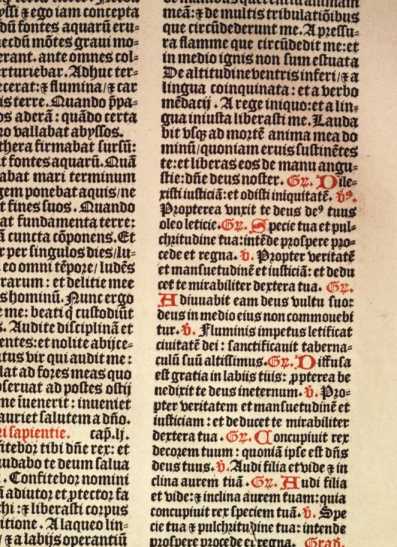 yssi ⁊ ego iam concepta
dū fontes aquarū eru⸗
ecdū mōtes graui mo⸗
erant. ante omnes col⸗
rturiebar. Adhuc ter⸗
ecerat: ⁊ flumina/⁊ car
is terre. Quando ꝓpa⸗
os aderā: quādo certa
ro vallabat abyssos.
thera firmabat sursū:
t fontes aquarū. Quā
abat mari terminum
gem ponebat aquis/ne
t fines suos. Quando
at fundamenta terre:
ā cuncta cōponens. Et
r per singulos dies/lu⸗
co omni tēpore/ ludēs
rarum: et delitie mee
s hominū. Nunc ergo
me: beati q̄ custodiūt
s. Audite disciplinā et
entes: et nolite abijce⸗
tus vir qui audit me:
lat ad fores meas quo
seruat ad postes ostij
ne īuenerit: inueniet
auriet salutem a dño.
ri sapientie. cap. lj.
itebor tibi dñe rex: et
udabo te deum salua
. Confitebor nomini
ā adiutor et ꝓtector fa
hi: ⁊ liberasti corpus
itione. A laqueo lin⸗
⁊ a labijs operantiū
meā: ⁊ de multis tribulatiōibus
que circūdederunt me. A pressu⸗
ra flamme que circūdedit me: et
in medio ignis non sum estuata
De altitudine ventris inferi/⁊ a
lingua coinquinata: et a verbo
mēdacij. A rege iniquo: et a lin⸗
gua iniusta liberasti me. Lauda
bit vsqȝ ad mortē anima mea do
minū/quoniam eruis sustinētes
te: et liberas eos de manu angu⸗
stie: dñe deus noster. Gr. Dile⸗
xisti iusticiā: et odisti iniquitatē. v̄.
Propterea vnxit te deus deꝰ tuus
oleo leticie. Gr. Specie tua et pul⸗
chritudine tua: intēde prospere pro⸗
cede et regna. v̄. Propter veritatē
et mansuetudinē et iusticiā: et dedu
cet te mirabiliter dextera tua. Gr.
Adiuuabit eam deus vultu suo:
deus in medio eius non commouebi
tur. v̄. Fluminis impetus letificat
ciuitatē dei: sanctificauit taberna⸗
culū suū altissimus. Gr. Diffusa
est gratia in labiis tuis: ꝓpterea be
nedixit te deus ineternum. v̄. Pro⸗
pter veritatem et mansuetudinē et
iusticiam: et deducet te mirabiliter
dextera tua. Gr. Concupiuit rex
decorem tuum: quoniā ipse est dñs
deus tuus. v̄. Audi filia et vide ⁊ in
clina aurem tuā. Gr. Audi filia
et vide: ⁊ inclina aurem tuam: quia
concupiuit rex speciem tuā. v̄. Spe
cie tua ⁊ pulchritudine tua: intende
prospere procede et regna. Grad.